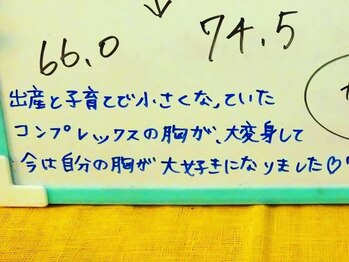 66.0 74.5
出産と子育てで小さくなっていた
コンプレックスの胸が、大変身して
今は自分の胸が大好きになりました♡♡